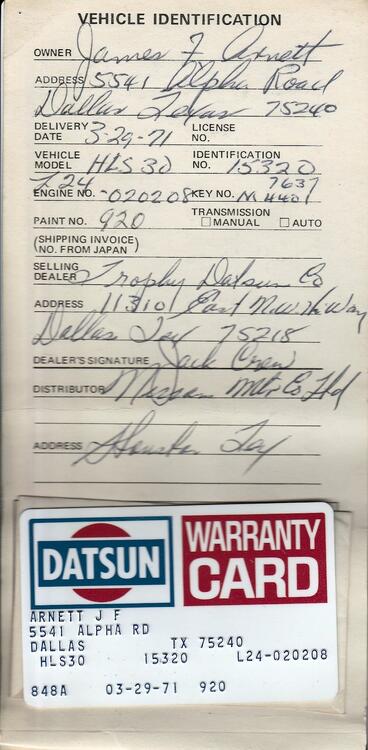 VEHICLE IDENTIFICATION
OWNER James F Arnett
ADDRESS 5541 Alpha Road
Dallas Texas 75240
DELIVERY DATE 3-29-71 LICENSE NO.
VEHICLE MODEL HLS30 IDENTIFICATION NO. 15320
L24 7637
ENGINE NO. -020208 KEY NO. M4401
PAINT NO. 920 TRANSMISSION ☐ MANUAL ☐ AUTO
(SHIPPING INVOICE)
(NO. FROM JAPAN)
SELLING DEALER Trophy Datsun Co
ADDRESS 11310 East N.W. Hi Way
Dallas Tex 75218
DEALER'S SIGNATURE Jack Crew
DISTRIBUTOR Nissan Mtr Co Ltd
ADDRESS Houston Tex
DATSUN WARRANTY CARD
ARNETT J F
5541 ALPHA RD
DALLAS TX 75240
HLS30 15320 L24-020208
848A 03-29-71 920